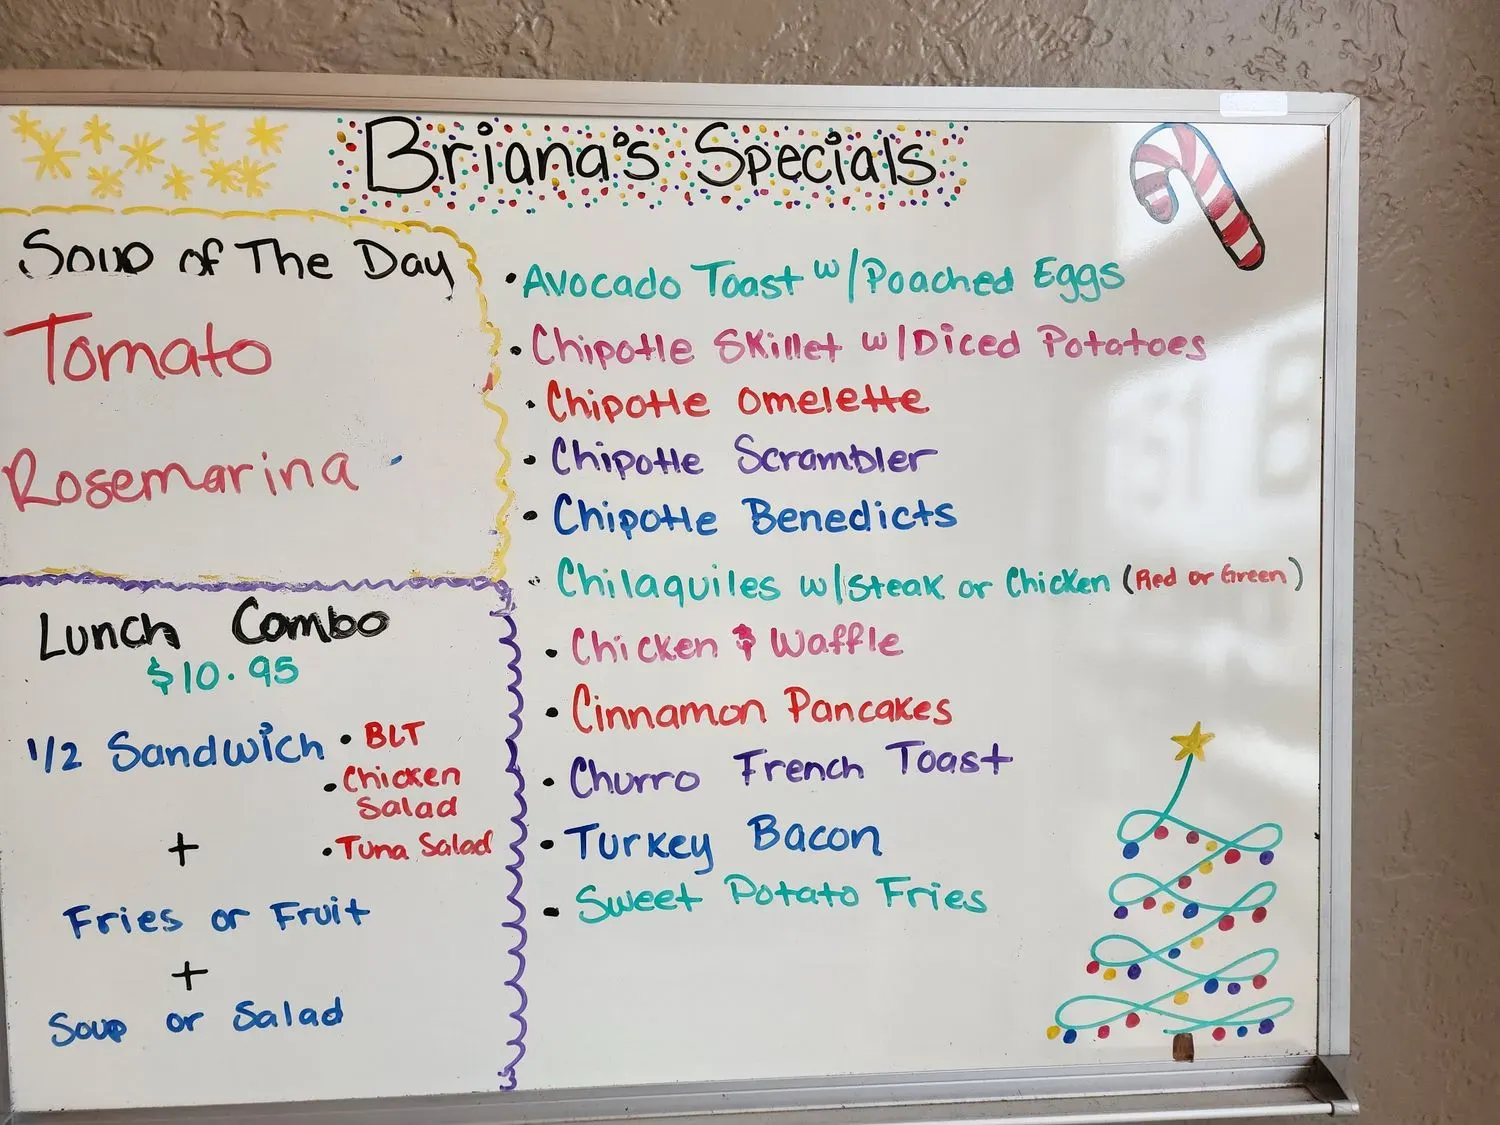 Briana's Specials
Soup of The Day
Tomato
Rosemarina
Lunch Combo
$10.95
1/2 Sandwich
• BLT
• Chicken
Salad
• Tuna Salad
+
Fries or Fruit
+
Soup or Salad
• Avocado Toast w/Poached Eggs
• Chipotle Skillet w/Diced Potatoes
• Chipotle Omelette
• Chipotle Scrambler
• Chipotle Benedicts
• Chilaquiles w/Steak or Chicken (Red or Green)
• Chicken & Waffle
• Cinnamon Pancakes
• Churro French Toast
• Turkey Bacon
• Sweet Potato Fries